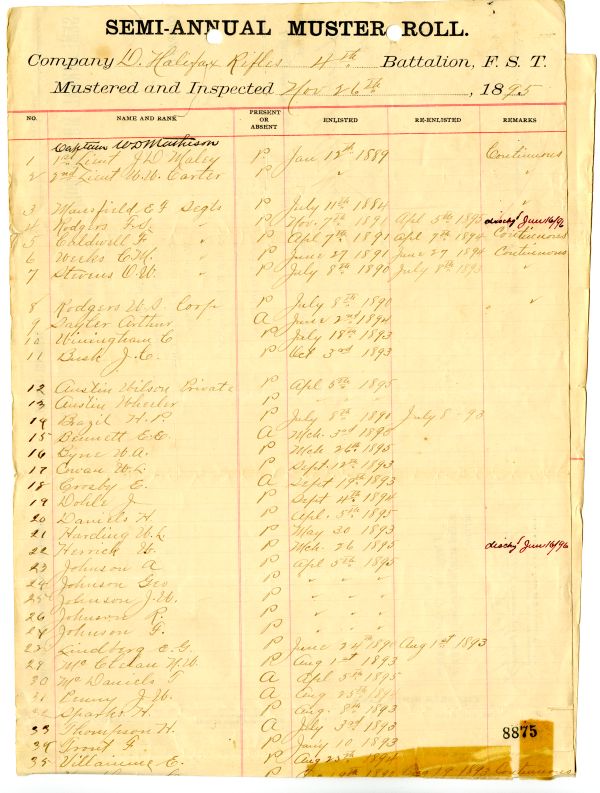 SEMI-ANNUAL MUSTER ROLL.
Company D. Halifax Rifles 4th Battalion, F. S. T.
Mustered and Inspected Nov 26th, 1895
NO. NAME AND RANK PRESENT OR ABSENT ENLISTED RE-ENLISTED REMARKS
Captain W D Mathison
1 1st Lieut J D Maley P Jan 12th 1889 Continuous
2 2nd Lieut W. W. Carter P " "
3 Mansfield E F Segts P July 11th 1884 "
4 Rodgers P Nov. 7th 1891 Apl 5th 1895 disch'g June 16/96
5 Caldwell F. " P Apl 7th 1891 Apl 7th 1894 Continuous
6 Weeks C. M. " P June 27 1891 June 27 1894 Continuous
7 Stevens O. W. " P July 8th 1890 July 8th 1893
8 Rodgers W. S. Corp P July 8th 1890 " "
9 Tayler Arthur A June 2nd 1894
10 Winingham C P July 18th 1893
11 Busk J. C. P Oct 3rd 1893
12 Austin Wilson Private P Apl 5th 1895
13 Austin Wheeler P " " "
14 Brazil H. P. P July 8th 1890 July 8 - 93
15 Bennett E. E. A Mch. 3rd 1895
16 Byne W A. P Mch 26th 1895
17 Cowan W. L. P Sept. 12th 1893
18 Crosby E. A Sept 19th 1893
19 Dohle J P Sept 4th 1894
20 Daniels H P Apl. 5th 1895
21 Harding W. L. P May 30 1893
22 Herrick W. P Mch. 26 1895 disch'g June 16/96
23 Johnson A P Apl 5th 1895
24 Johnson Geo P " " "
25 Johnson J. W. P " " "
26 Johnson R. P " " "
27 Johnson G. P
28 Lindberg C. G. P June 24th 1890 Aug 1st 1893
29 Mc Clelan N. W. P Aug 1st 1893
30 Mc Daniels T A Apl 5th 1895
31 Penny J. W. A Aug 25th 1894
32 Sparks H. P Aug. 8th 1893
33 Thompson H. A July 3rd 1893
34 Trout F. P Jany 10 1893
35 Villanime E. P Aug 25th 1894
8875
Aug 19 1893 Continuous